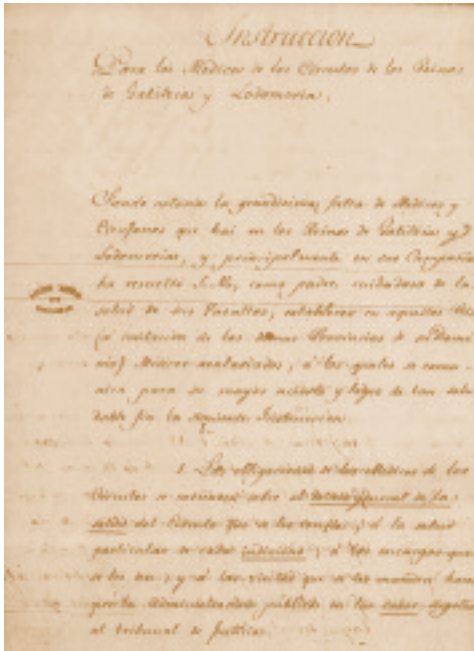 Instruccion
Para los Médicos de los Circulos de los Reinos
de Galitzia y Lodomeria.
Siendo notoria la grandisima falta de Médicos y
Cirujanos que hai en los Reinos de Galitzia y
Lodomeria, y principalmente en sus
ha resuelto S. M., como padre cuidadoso de la
salud de sus Vasallos, establecer en aquellos
(a imitacion de las demas Provincias de su
) Médicos asalariados, á los quales se comu-
nica, para su mayor acierto y logro de tan salu-
dable fin la siguiente Instruccion.
1. Las obligaciones de los Médicos de los
Circulos se sobre el general de la
salud del Circulo que se les confia; á la salud
particular de cada individuo; á los encargos que
se les den; y á las visitas que se les manden hacer
por la Administracion pública en los casos
al tribunal de Justicia.